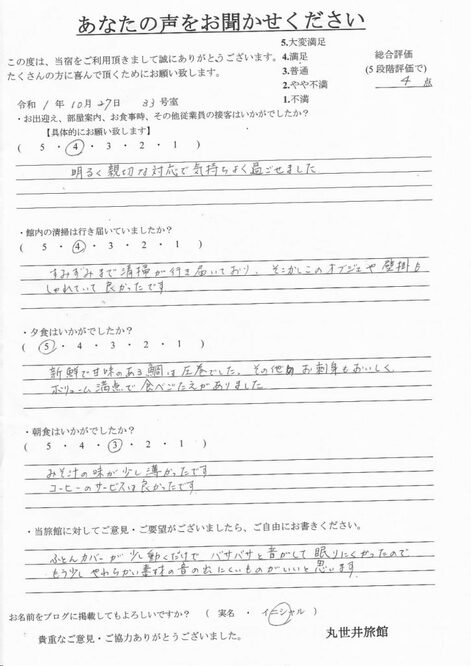 あなたの声をお聞かせください
この度は、当宿をご利用頂きまして誠にありがとうございます。
たくさんの方に喜んで頂くためにお願い致します。
5.大変満足
4.満足
3.普通
2.やや不満
1.不満
総合評価
(5段階評価で)
4 点
令和 1 年 10 月 27 日 33 号室
・お出迎え、部屋案内、お食事時、その他従業員の接客はいかがでしたか？
【具体的にお願い致します】
( 5 ・ 4 ・ 3 ・ 2 ・ 1 )
明るく親切な対応で気持ちよく過ごせました
・館内の清掃は行き届いていましたか？
( 5 ・ 4 ・ 3 ・ 2 ・ 1 )
すみずみまで清掃が行き届いており、そこかしこのオブジェや壁掛も
しゃれていて良かったです
・夕食はいかがでしたか？
( 5 ・ 4 ・ 3 ・ 2 ・ 1 )
新鮮で甘味のある鯛は圧巻でした。その他お刺身もおいしく
ボリューム満点で食べごたえがありました
・朝食はいかがでしたか？
( 5 ・ 4 ・ 3 ・ 2 ・ 1 )
みそ汁の味が少し薄かったです
コーヒーのサービスは良かったです
・当旅館に対してご意見・ご要望がございましたら、ご自由にお書きください。
ふとんカバーが少し動くだけでバサバサと音がして眠りにくかったので
もう少しやわらかい素材の音の出にくいものがいいと思います
お名前をブログに掲載してもよろしいですか？ ( 実名 ・ イニシャル )
貴重なご意見・ご協力ありがとうございました。
丸世井旅館